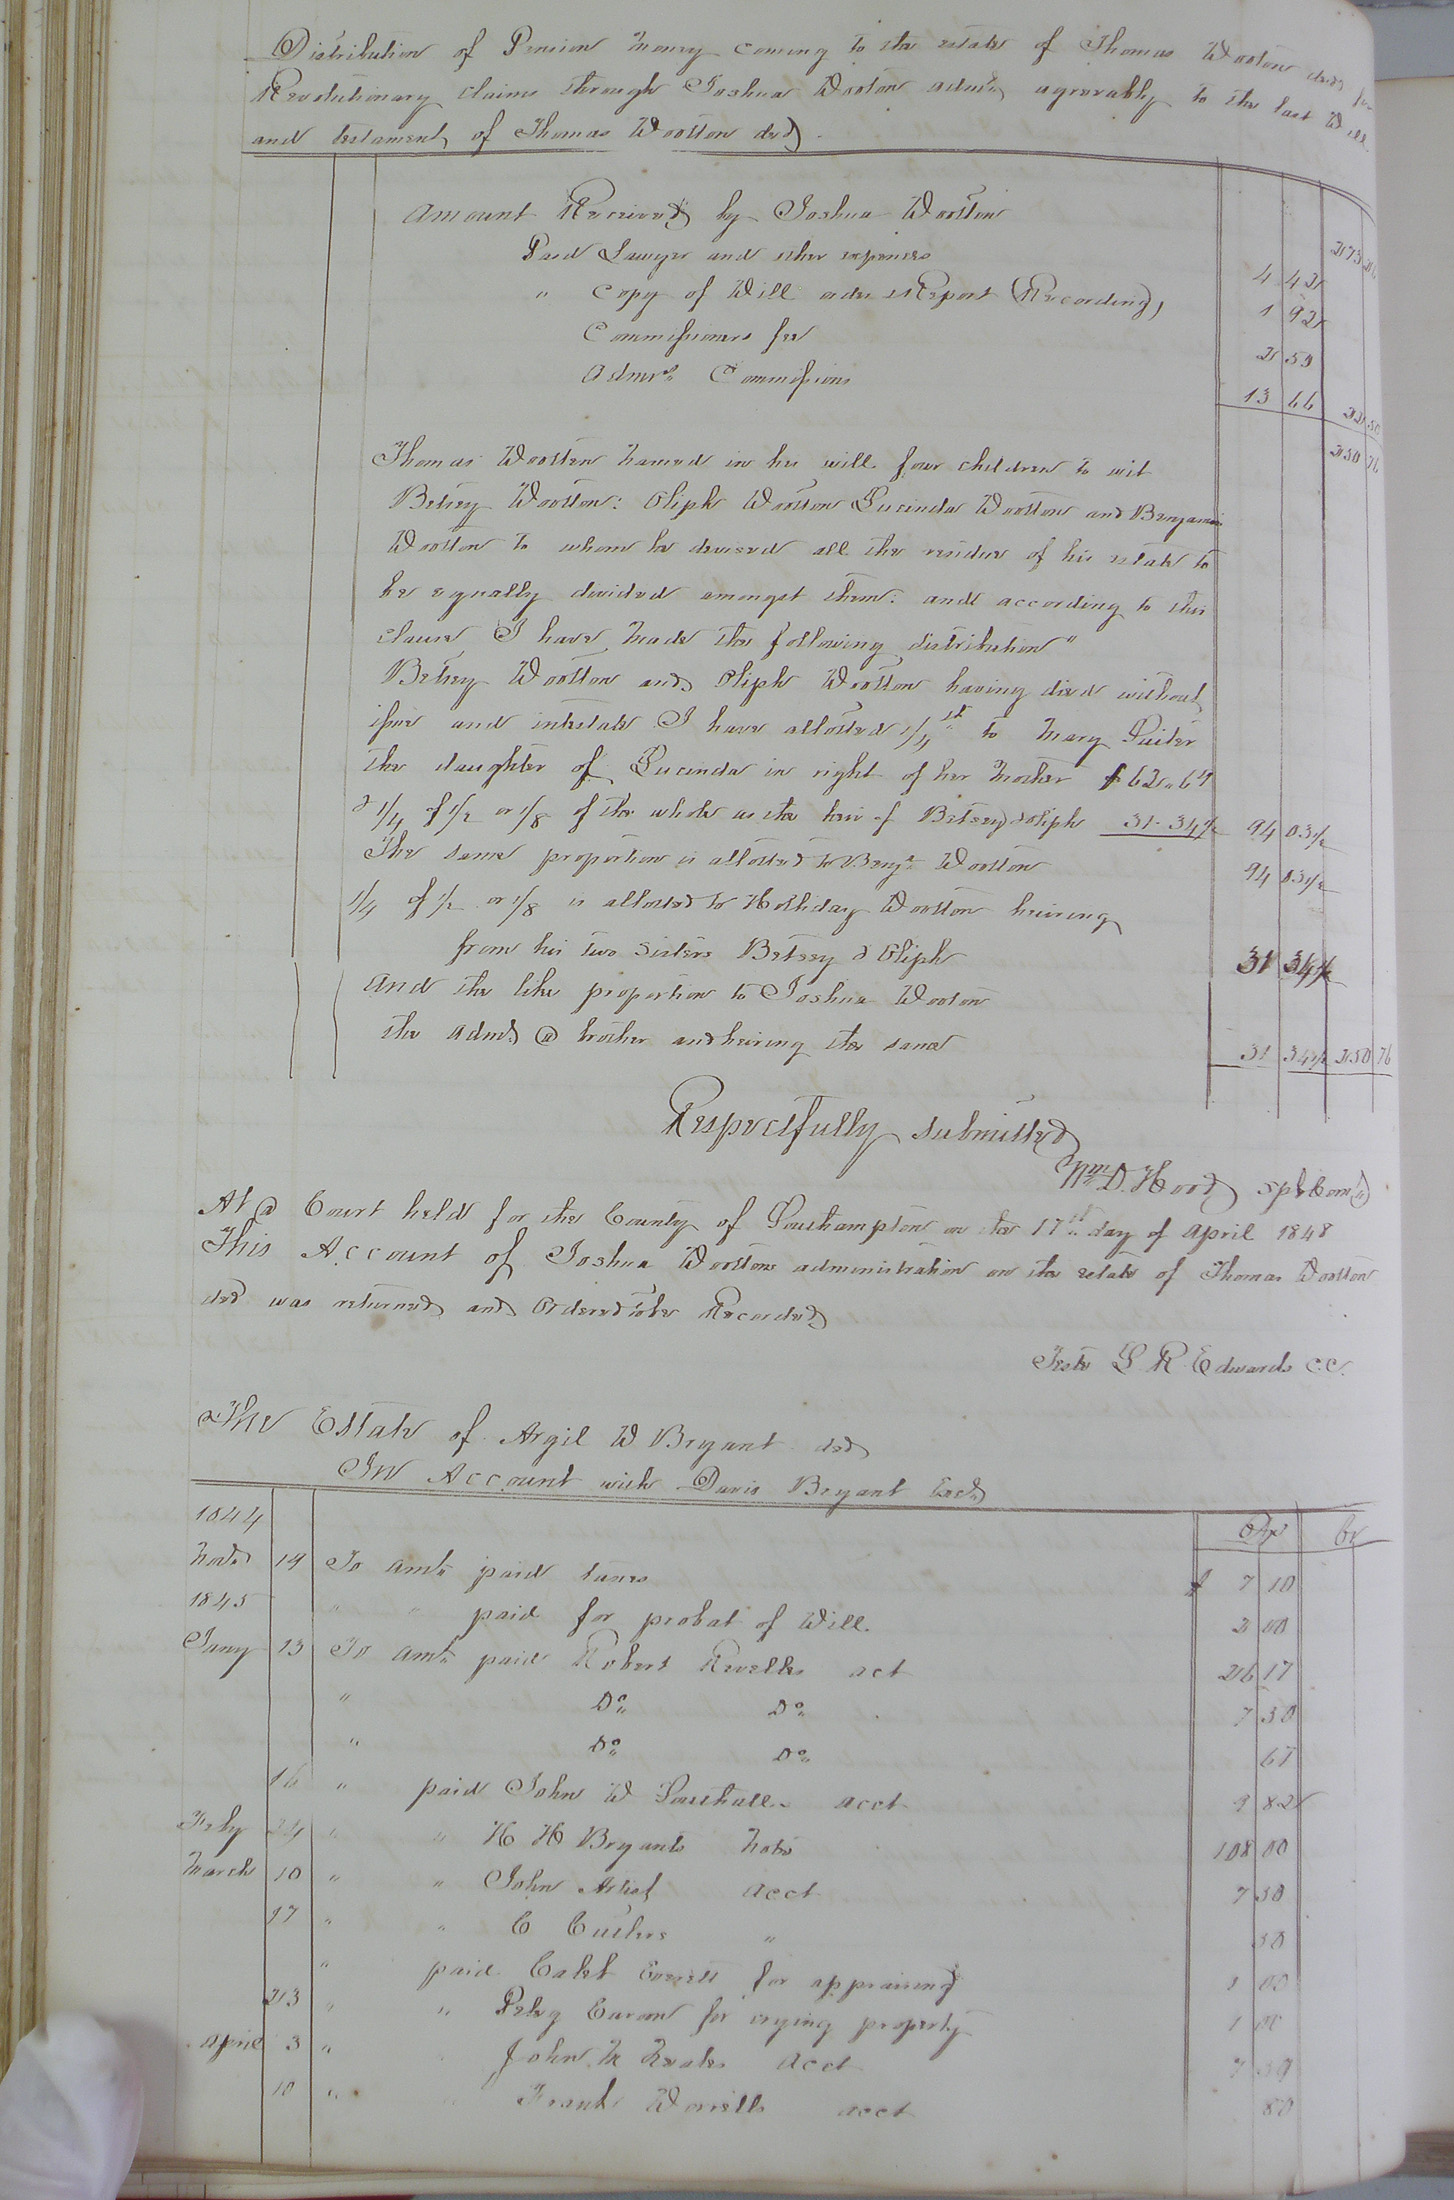 Distribution of Pension money coming to the estate of Thomas Wooton decd for
Revolutionary claims through Joshua Wooton admr, agreeably to the last Will
and testament, of Thomas Wootton decd.
Amount Received by Joshua Wootton 273 26
Paid Lawyer and other expenses 4 42
" Copy of Will order Report (Recording) 1 92
Commissioners fee 2 50
Admrs. Commissions 13 66 22 50
250 76
Thomas Wootten named in his will four children to wit
Betsey Wootton: Oliph Wootton Lucinda Wootton and Benjamin
Wootton to whom he devised all the residue of his estate to
be equally divided amongst them: and according to this
clause I have made the following distribution"
Betsey Wootton and Oliph Wootton having died without
issue and intestate I have allotted 1/4 th to Mary Suiter
the daughter of Lucinda in right of her Mother $62.69
& 1/4 of 1/2 or 1/8 of the whole as the heir of Betsey & Oliph 31.34 1/2 94 03 1/2
The same proportion is allotted to Benja. Wootton 94 03 1/2
1/4 of 1/2 or 1/8 is allotted to Holliday Wootton heiring
from his two sisters Betsey & Oliph 31 34 1/2
And the like proportion to Joshua Wooton
the Admr. a brother and heiring the same 31 34 1/2 250 76
Respectfully submitted
Wm D. Hood spl Comr
At a Court held for the County of Southampton on the 17th day of April 1848
This Account of Joshua Woottons administration on the estate of Thomas Wootton
decd was returned and Ordered to be Recorded
Teste L R Edwards C.C.
The Estate of Argil W Bryant decd
In Account with Davis Bryant Exr.
1844 Dr Cr
Novr 19 To amt. paid taxes $ 7 10
1845 " " paid for probat of Will. 2 00
Jany 13 To amt. paid Robert Revells act 26 17
" Do. Do. 7 50
" Do. Do. 67
16 " paid John W Southall acct 9 82
Feby 24 " " H H Bryants note 108 00
March 10 " " John Artist acct 7 50
17 " " C " 50
" paid Caleb for appraising 1 00
23 " " Peleg for crying property 1 00
April 3 " John acct 7 59
10 " " Frank Worrells acct 80